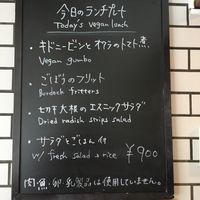 今日のランチプレート
Today's vegan lunch
・キドニービンとオクラのトマト煮
Vegan gumbo
・ごぼうのフリット
Burdock fritters
・切干大根のエスニックサラダ
Dried radish strips salad
・サラダとごはん付
w/ fresh salad & rice ¥900
肉・魚・卵・乳製品は使用していません。